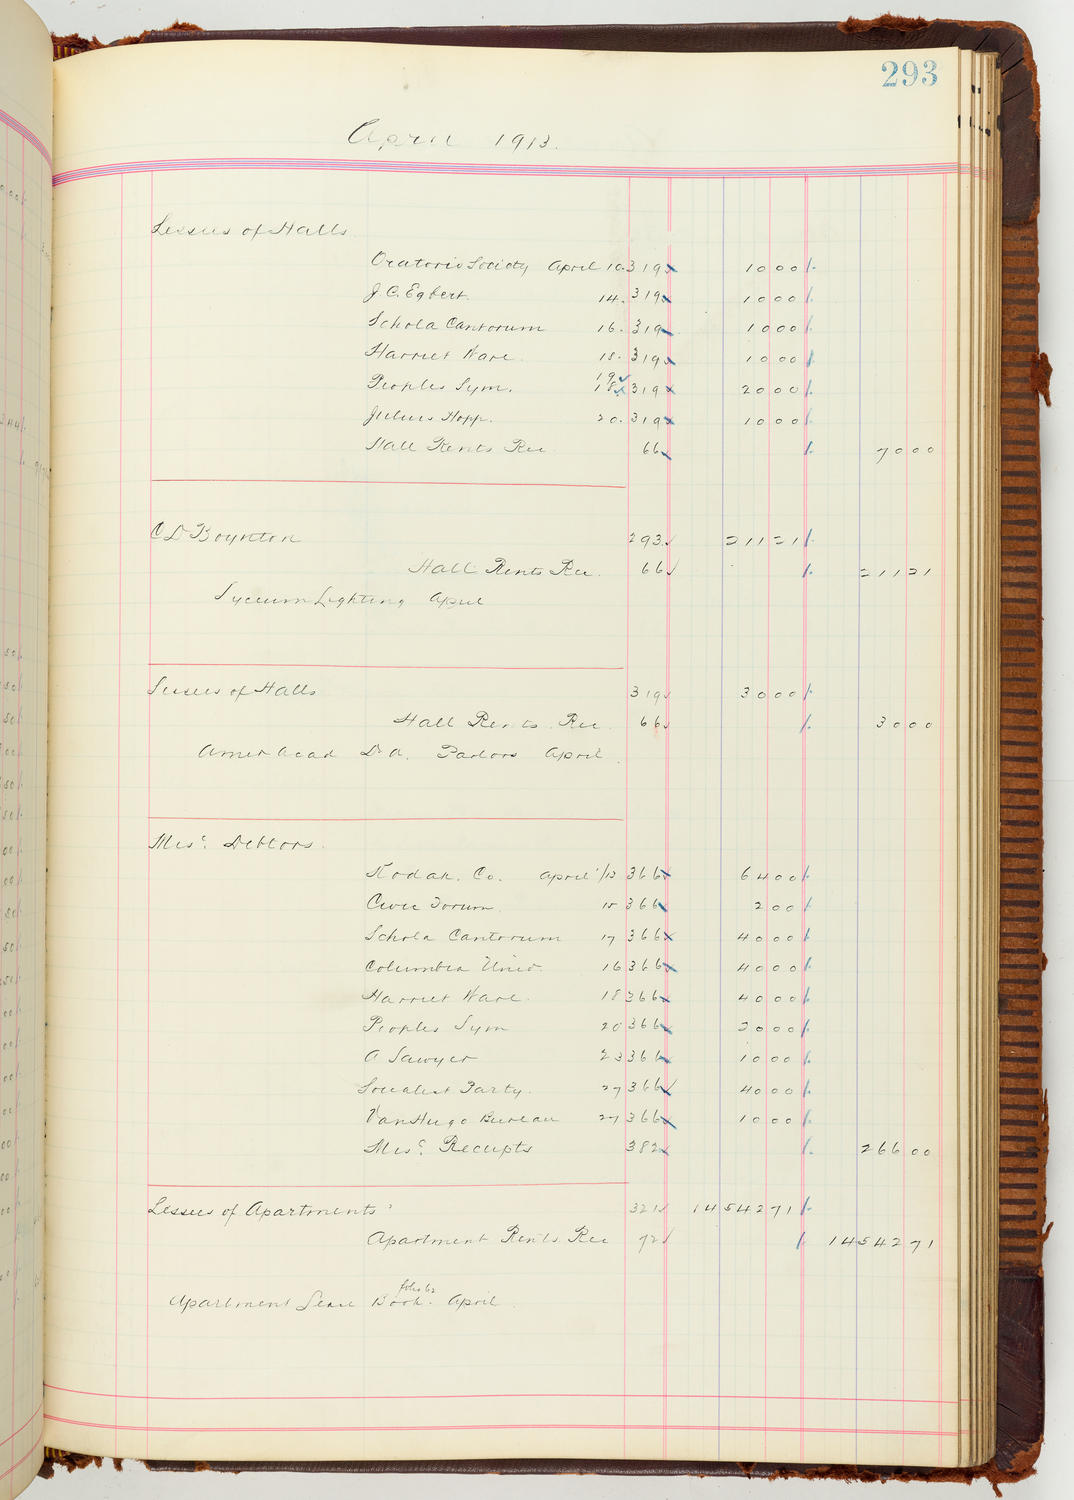 293
April 1913.
Lessees of Halls
Oratorio Society April 10. 319 1000
J. C. Egbert. 14. 319 1000
Schola Cantorum 16. 319 1000
Harriet Ware. 18. 319 1000
19
Peoples Sym. 18 319 2000
Julius Hopp. 20. 319 1000
Hall Rents Rec 66 7000
C D Boynton 293 21121
Hall Rents Rec. 66 21121
Lyceum Lighting April
Lessees of Halls 319 3000
Hall Rents. Rec 66 3000
Amer Acad D. A. Parlors April.
Misc. Debtors.
Kodak. Co. April 1/13 366 6400
Civic Forum. 15 366 200
Schola Cantorum 17 366 4000
Columbia Univ. 16 366 4000
Harriet Ware. 18 366 4000
Peoples Sym 20 366 2000
A Sawyer 23 366 1000
Socialist Party. 27 366 4000
Van Hugo Bureau 27 366 1000
Misc. Receipts 382 26600
Lessees of Apartments 321 1454271
Apartment Rents. Rec 72 1454271
folio 62
Apartment Lease Book. April